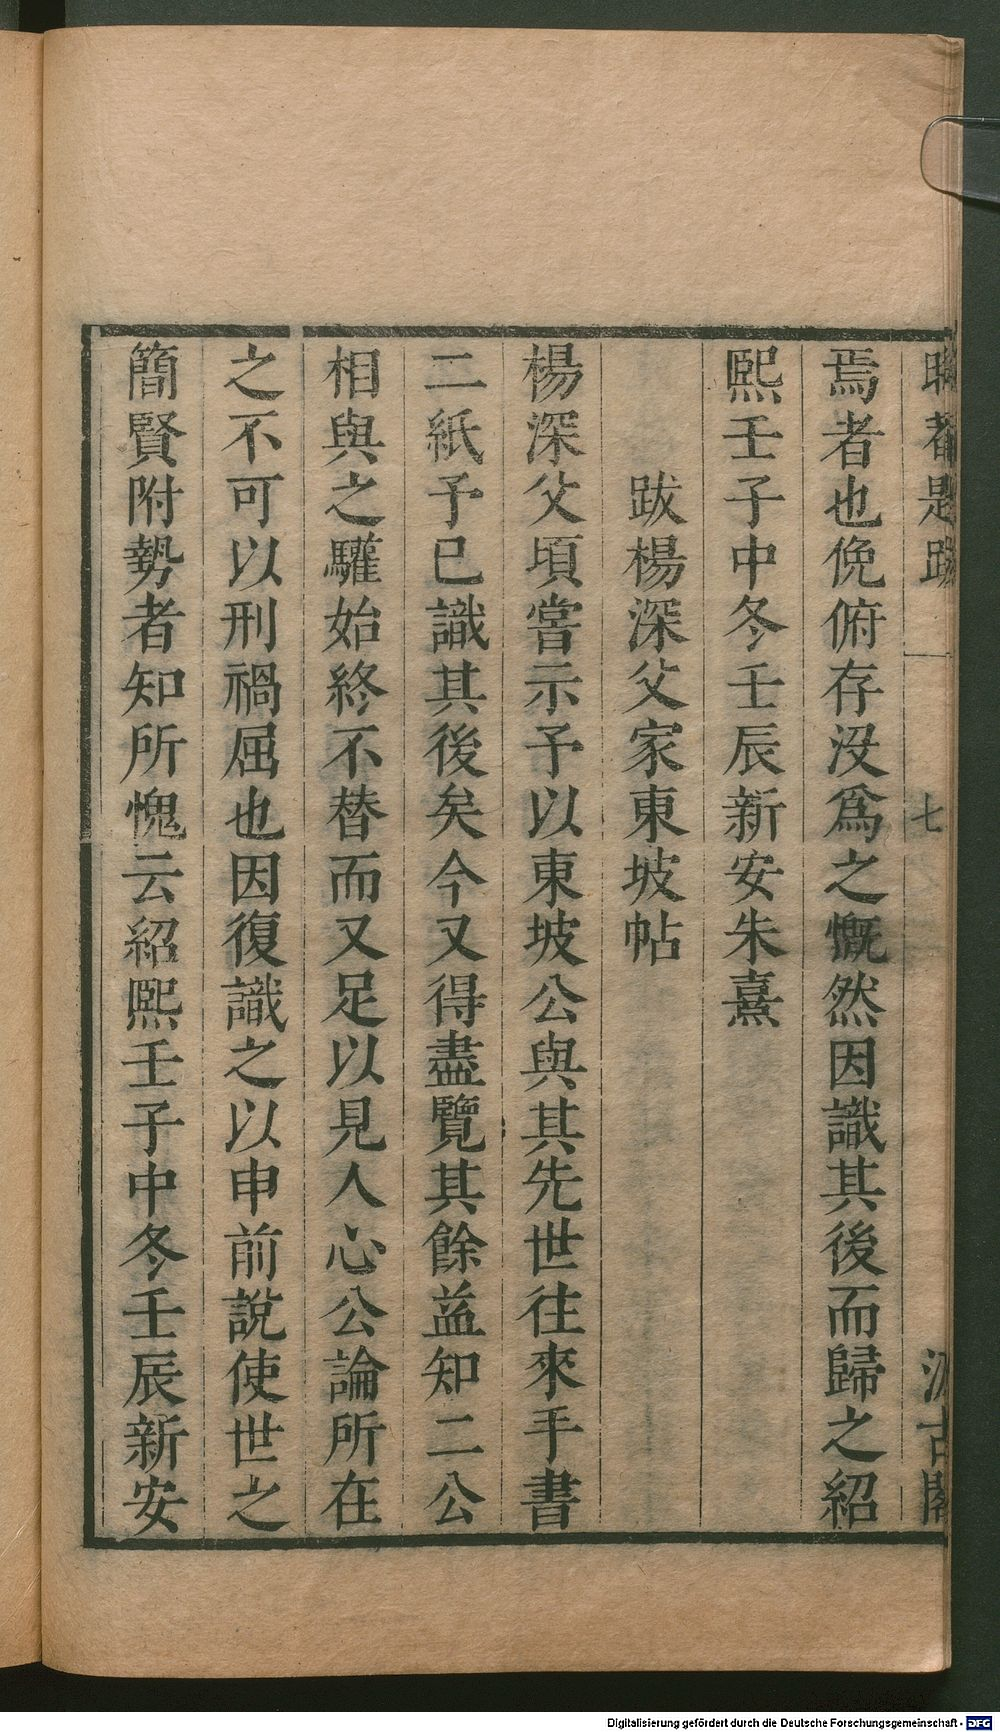 焉者也俛俯存没爲之慨然因識其後而歸之紹
熙壬子中冬壬辰新安朱熹
跋楊深父家東坡帖
楊深父頃嘗示予以東坡公與其先世往來手書
二紙予已識其後矣今又得盡覽其餘益知二公
相與之驩始終不替而又足以見人心公論所在
之不可以刑禍屈也因復識之以申前說使世之
簡賢附勢者知所愧云紹熙壬子中冬壬辰新安
Digitalisierung gefördert durch die Deutsche Forschungsgemeinschaft - DFG